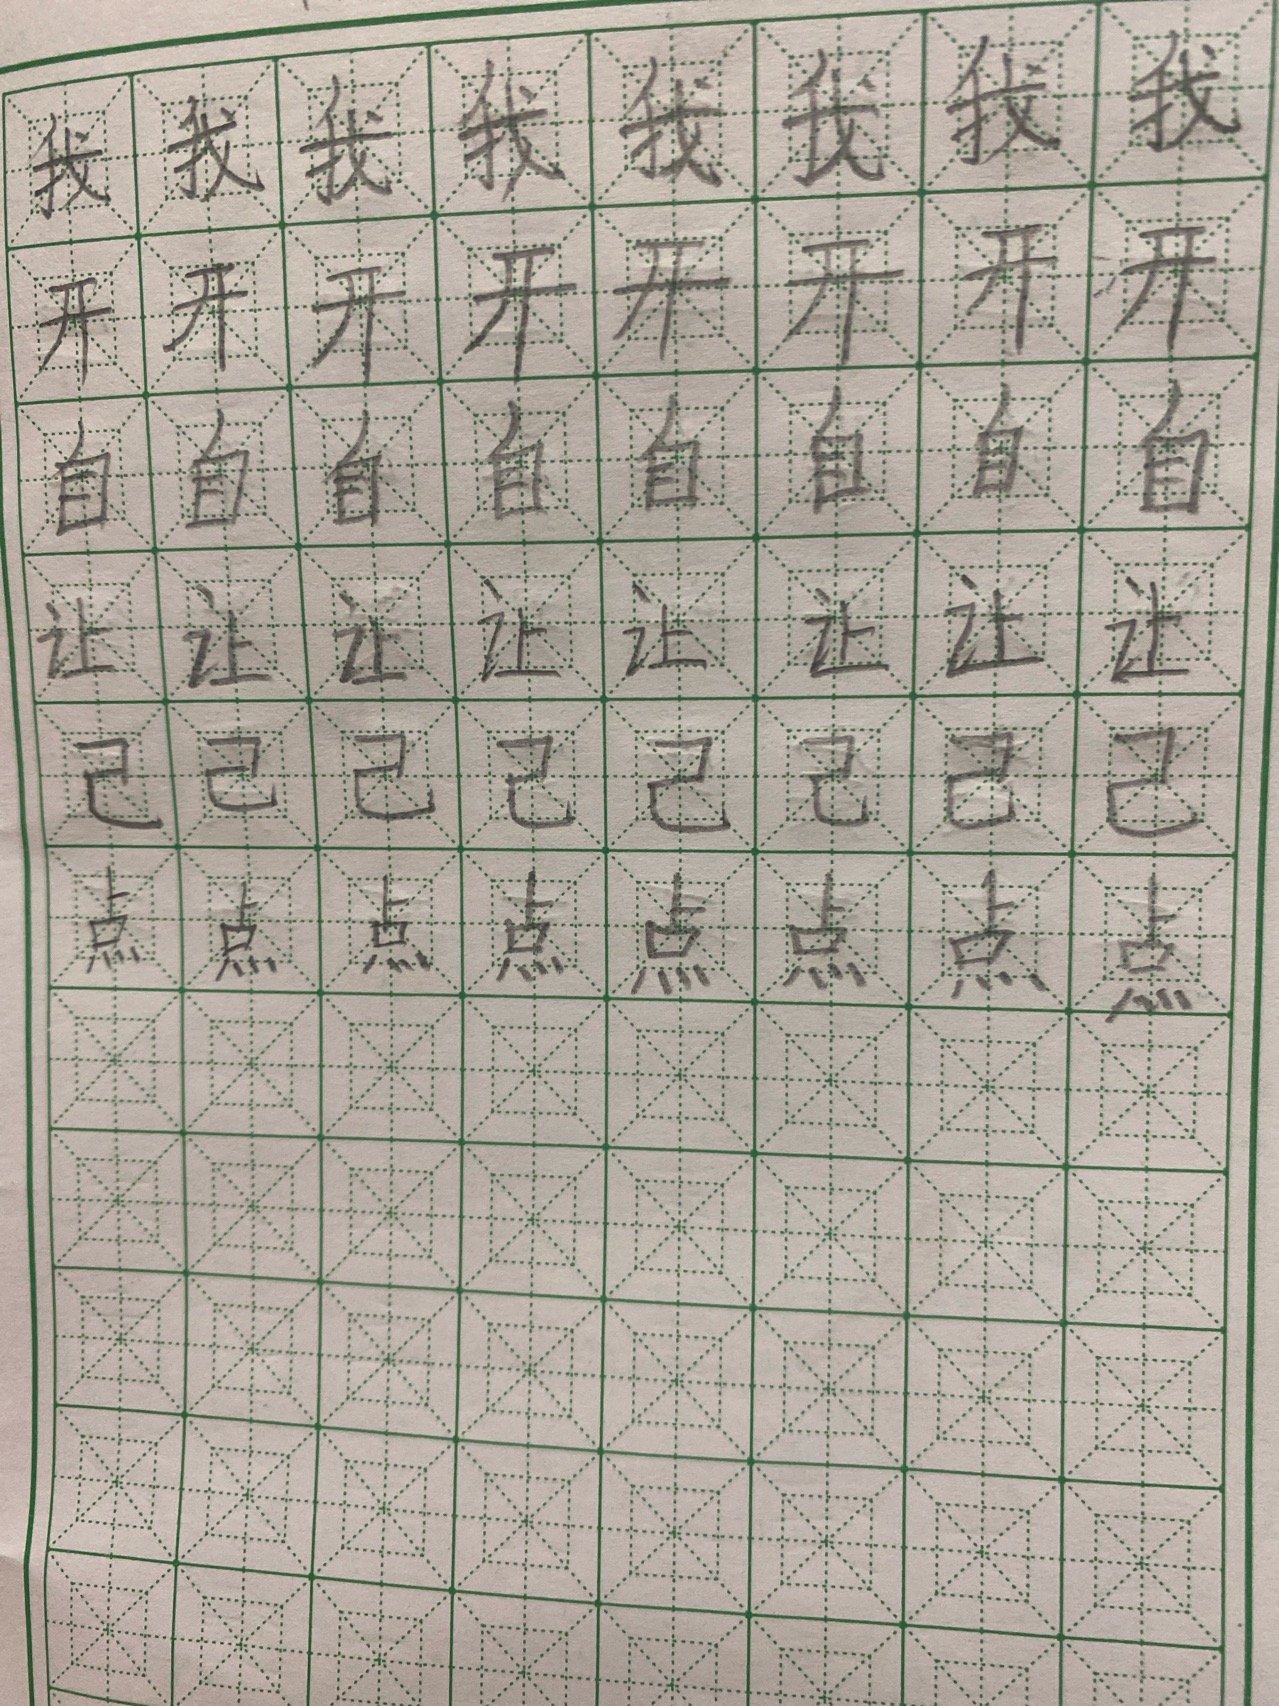 我我我我我我我我
开开开开开开开开
自自自自自自自自
让让让让让让让让
己己己己己己己己
点点点点点点点点